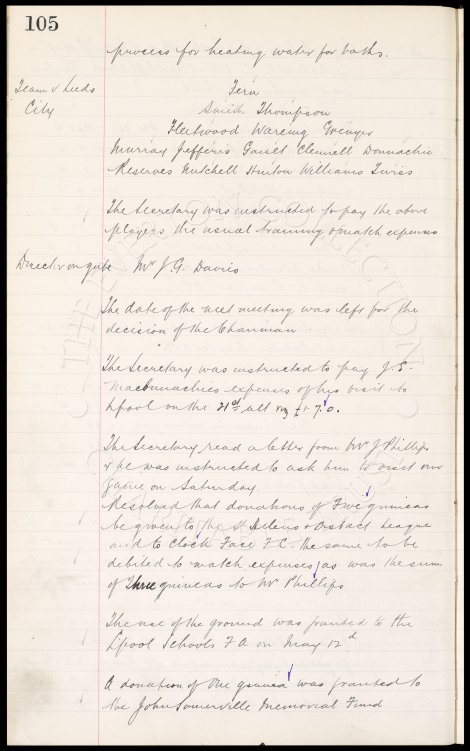 105
process for heating water for baths.
Team v Leeds
City
Fern
Smith Thompson
Fleetwood Wareing Grenyer
Murray Jefferis Gault Clennell Donnachie
Reserves Mitchell Howton Williams Twiss
The Secretary was instructed to pay the above
players the usual training & match expenses
Director on gate Mr J. G. Davies
The date of the next meeting was left for the
decision of the Chairman
The Secretary was instructed to pay J. S.
Macconnachies expenses of his visit to
Lpool on the 21st ult viz £1. 7. 0.
The Secretary read a letter from Mr J Phillips
& he was instructed to ask him to visit our
game on Saturday.
Resolved that donations of Five guineas
be given to the St Helens & District League
and to Clock Face F.C. the same to be
debited to match expenses, as was the sum
of three guineas to Mr Phillips
The use of the ground was granted to the
L'pool Schools F A on May 12th
A donation of One guinea was granted to
the John Somerville Memorial Fund
THE EVERTON COLLECTION